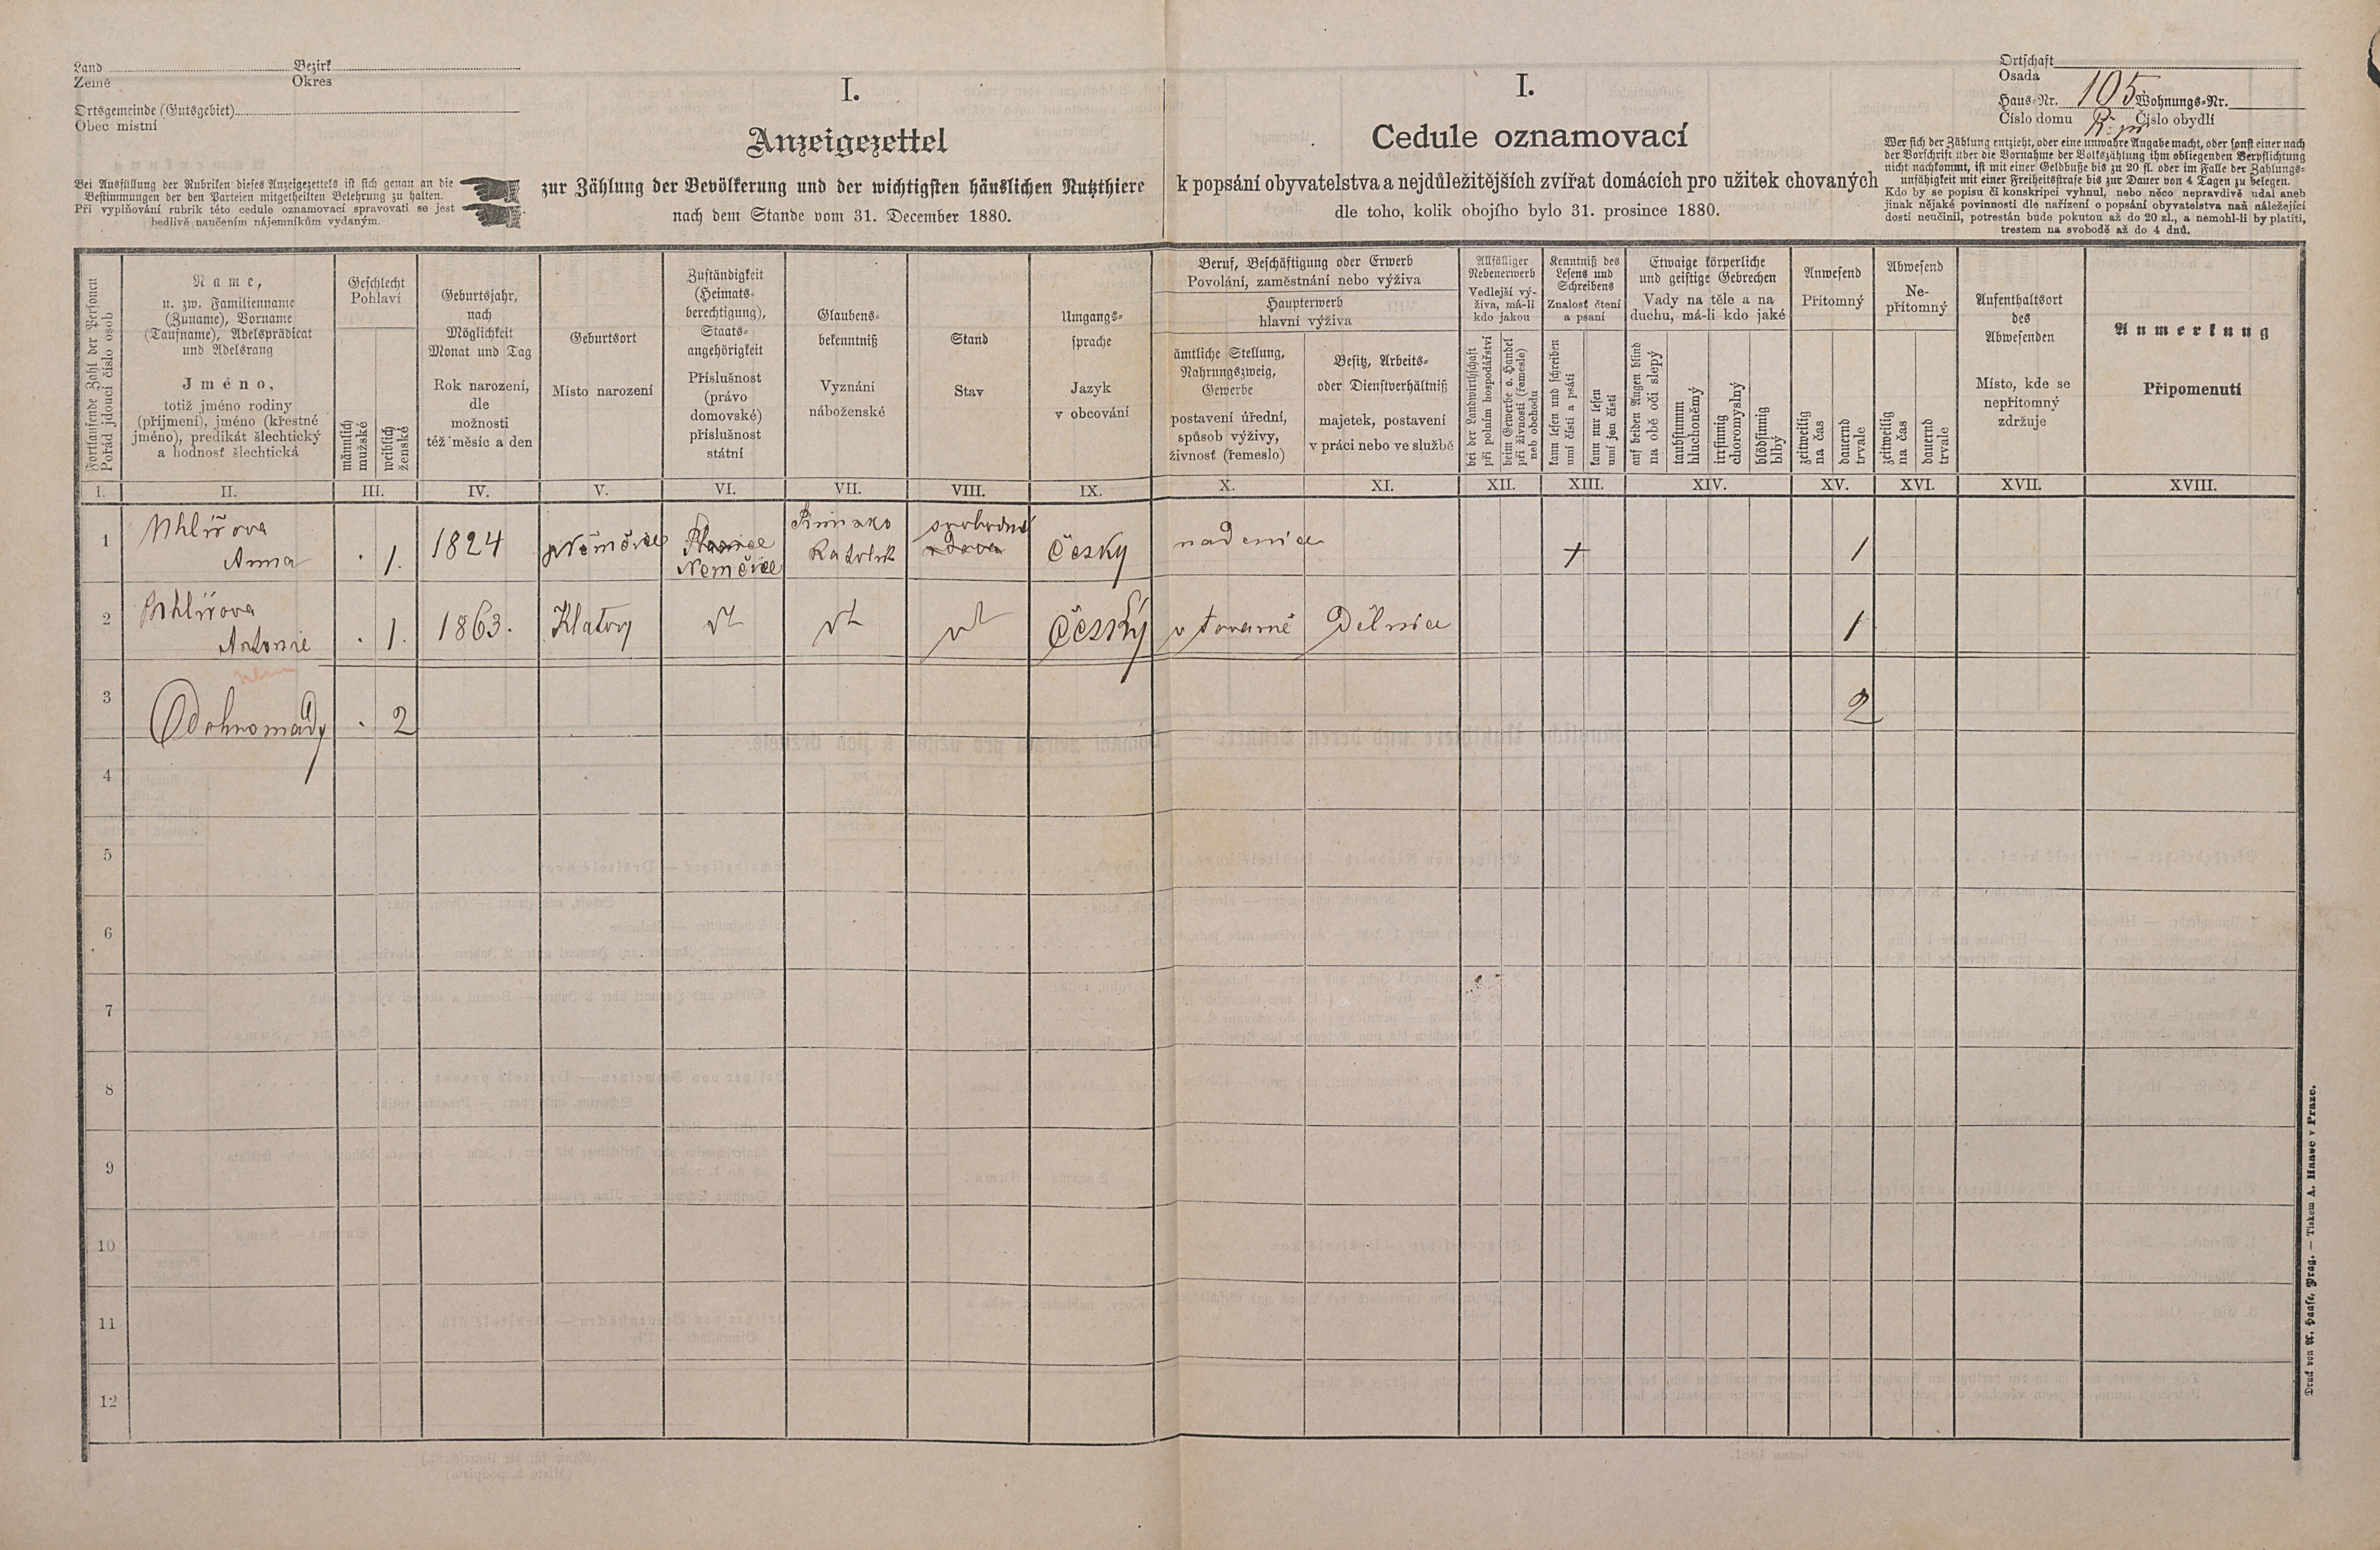 Land Bezirk
Země Okres
Ortsgemeinde (Gutsgebiet)
Obec místní
Bei Ausfüllung der Rubriken dieses Anzeigezettels ist sich genau an die
Bestimmungen der den Parteien mitgetheilten Belehrung zu halten.
Při vyplňování rubrik této cedule oznamovací spravovati se jest
bedlivě naučením nájemníkům vydaným.
I.
Anzeigezettel
zur Zählung der Bevölkerung und der wichtigsten häuslichen Nutzthiere
nach dem Stande vom 31. December 1880.
I.
Cedule oznamovací
k popsání obyvatelstva a nejdůležitějších zvířat domácích pro užitek chovaných
dle toho, kolik obojího bylo 31. prosince 1880.
Ortschaft
Osada
Haus-Nr. 105 Wohnungs-Nr.
Číslo domu Číslo obydlí
Wer sich der Zählung entzieht, oder eine unwahre Angabe macht, oder sonst einer nach
der Vorschrift über die Vornahme der Volkszählung ihm obliegenden Verpflichtung
nicht nachkommt, ist mit einer Geldbuße bis zu 20 fl. oder im Falle der Zahlungs-
unfähigkeit mit einer Freiheitsstrafe bis zur Dauer von 4 Tagen zu belegen.
Kdo by se popisu či konskripci vyhnul, nebo něco nepravdivě udal aneb
jinak nějaké povinnosti dle nařízení o popsání obyvatelstva naň náležející
dosti neučinil, potrestán bude pokutou až do 20 zl., a nemohl-li by platiti,
trestem na svobodě až do 4 dnů.
Fortlaufende Zahl der Personen
Pořád jdoucí číslo osob
Name,
u. zw. Familienname
(Zuname), Vorname
(Taufname), Adelsprädicat
und Adelsrang
Jméno,
totiž jméno rodiny
(příjmení), jméno (křestné
jméno), predikát šlechtický
a hodnosť šlechtická
Geschlecht
Pohlaví
männlich
mužské
weiblich
ženské
Geburtsjahr,
nach
Möglichkeit
Monat und Tag
Rok narození,
dle
možnosti
též měsíc a den
Geburtsort
Místo narození
Zuständigkeit
(Heimats-
berechtigung),
Staats-
angehörigkeit
Příslušnost
(právo
domovské)
příslušnost
státní
Glaubens-
bekenntniß
Vyznání
náboženské
Stand
Stav
Umgangs-
sprache
Jazyk
v obcování
Beruf, Beschäftigung oder Erwerb
Povolání, zaměstnání nebo výživa
Haupterwerb
hlavní výživa
ämtliche Stellung,
Nahrungszweig,
Gewerbe
postavení úřední,
spůsob výživy,
živnosť (řemeslo)
Besitz, Arbeits-
oder Dienstverhältniß
majetek, postavení
v práci nebo ve službě
Allfälliger
Nebenerwerb
Vedlejší vý-
živa, má-li
kdo jakou
bei der Landwirthschaft
při polním hospodářství
beim Gewerbe o. Handel
při živnosti (řemesle)
neb obchodu
Kenntniß des
Lesens und
Schreibens
Znalost čtení
a psaní
kann lesen und schreiben
umí čísti a psáti
kann nur lesen
umí jen čísti
Etwaige körperliche
und geistige Gebrechen
Vady na těle a na
duchu, má-li kdo jaké
auf beiden Augen blind
na obě oči slepý
taubstumm
hluchoněmý
irrsinnig
choromyslný
blödsinnig
blbý
Anwesend
Přítomný
zeitweilig
na čas
dauernd
trvale
Abwesend
Ne-
přítomný
zeitweilig
na čas
dauernd
trvale
Aufenthaltsort
des
Abwesenden
Místo, kde se
nepřítomný
zdržuje
Anmerkung
Připomenutí
I. II. III. IV. V. VI. VII. VIII. IX. X. XI. XII. XIII. XIV. XV. XVI. XVII. XVIII.
1 Uhlířova Anna . 1. 1824 Němčice Němčice Římsko Katolik svobodná Česky nadenice + 1
2 Uhlířova Antonie . 1. 1863. Klatovy Český v továrně Dělnice 1
3 Dohromady . 2 2
4
5
6
7
8
9
10
11
12
Druck von A. Haase, Prag. — Tiskem A. Haase v Praze.